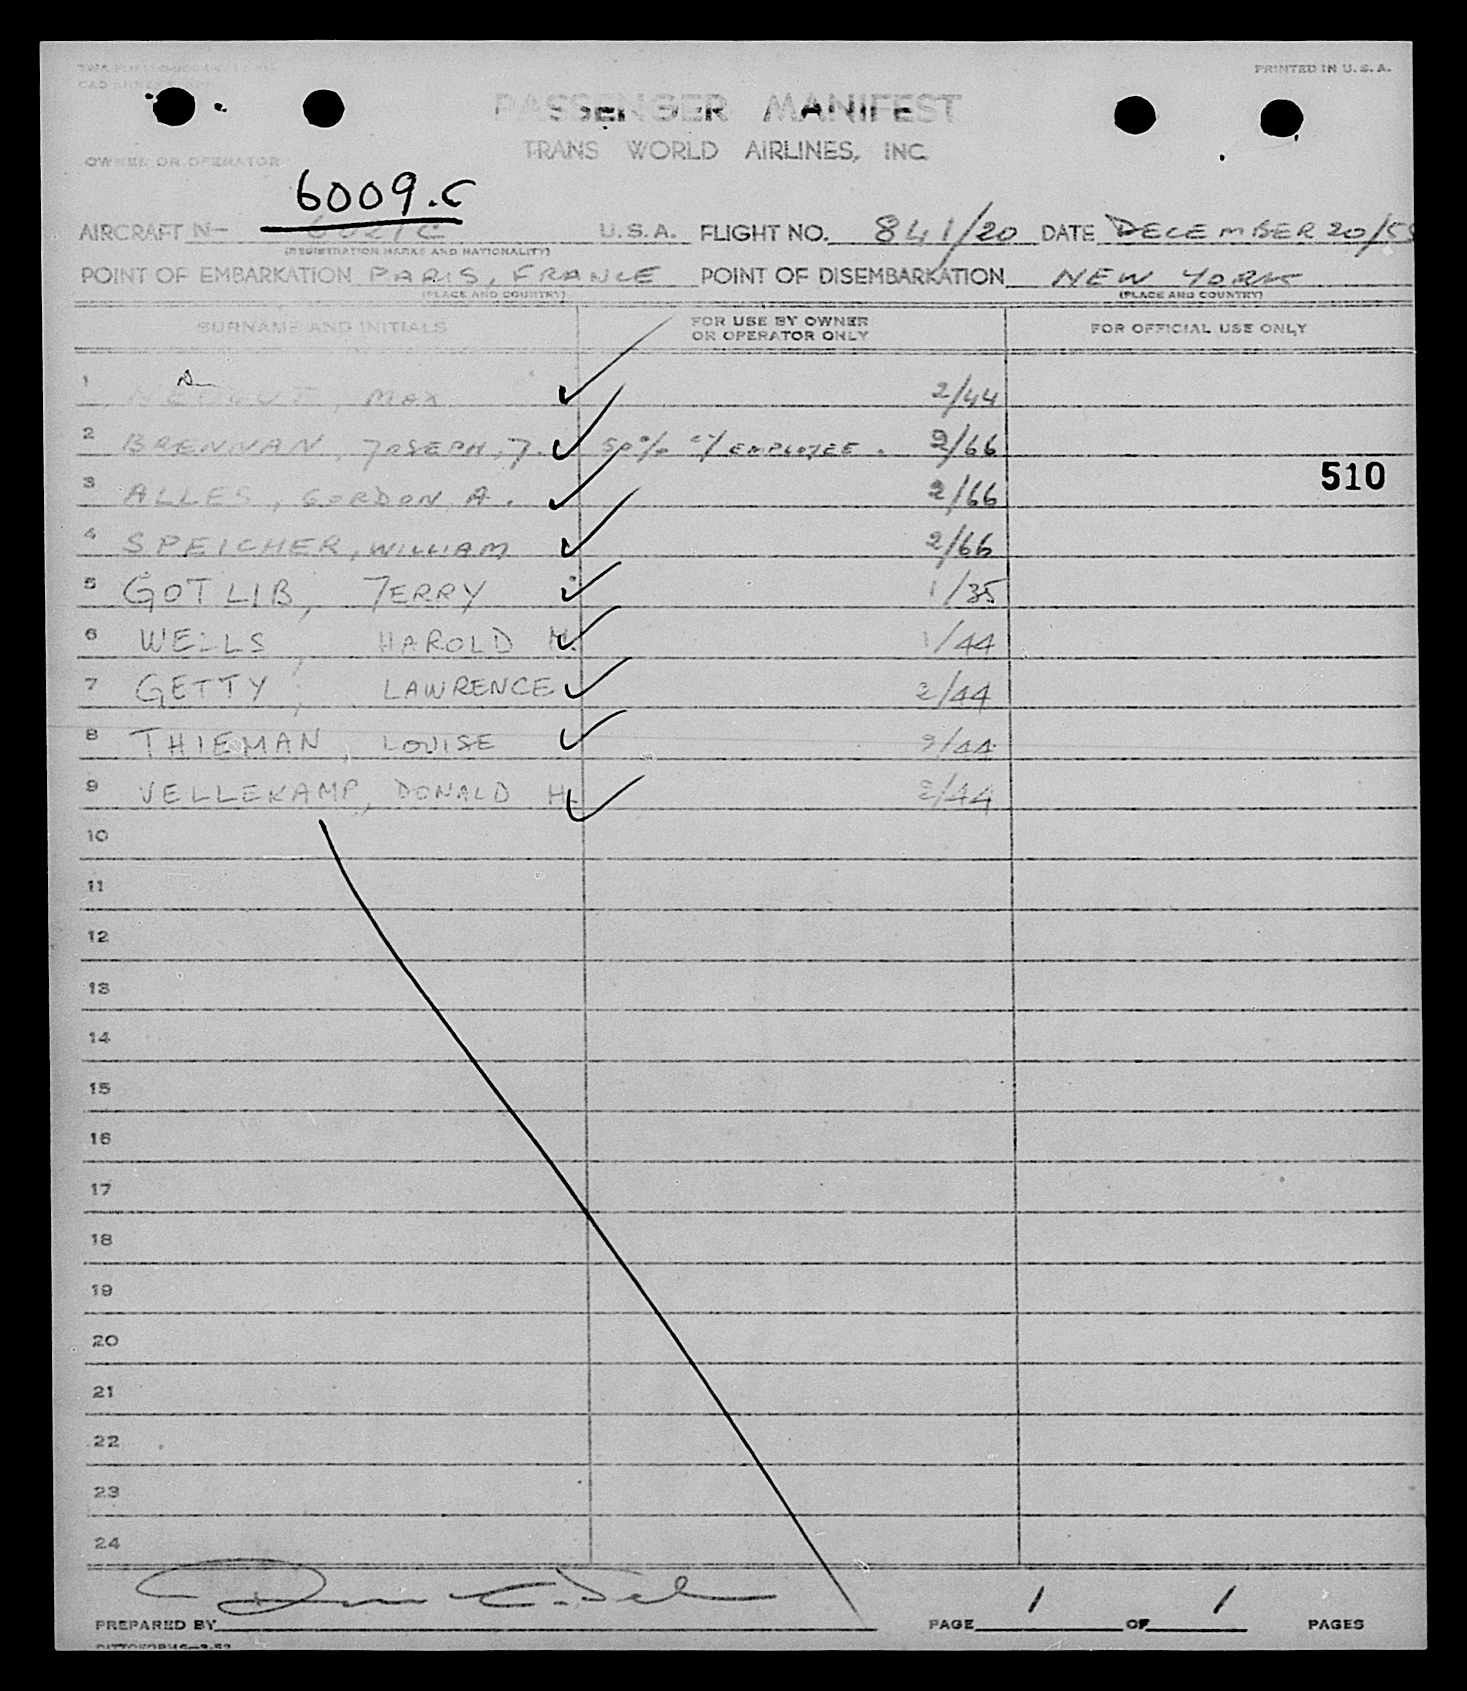 PRINTED IN U.S.A.
PASSENGER MANIFEST
TRANS WORLD AIRLINES, INC.
OWNER OR OPERATOR
6009.C
AIRCRAFT N- U.S.A. FLIGHT NO. 841/20 DATE DECEMBER 20/5
(REGISTRATION MARKS AND NATIONALITY)
POINT OF EMBARKATION PARIS, FRANCE POINT OF DISEMBARKATION NEW YORK
(PLACE AND COUNTRY) (PLACE AND COUNTRY)
SURNAME AND INITIALS FOR USE BY OWNER OR OPERATOR ONLY FOR OFFICIAL USE ONLY
1 MAX 2/44
2 BRENNAN, JOSEPH, J. 50% EMPLOYEE. 2/66
510
3 ALLES, GORDON A. 2/66
4 SPEICHER, WILLIAM 2/66
5 GOTLIB, JERRY 1/35
6 WELLS, HAROLD H. 1/44
7 GETTY, LAWRENCE 2/44
8 THIEMAN, LOUISE 2/44
9 VELLEKAMP, DONALD H. 2/44
10
11
12
13
14
15
16
17
18
19
20
21
22
23
24
PREPARED BY PAGE 1 OF 1 PAGES